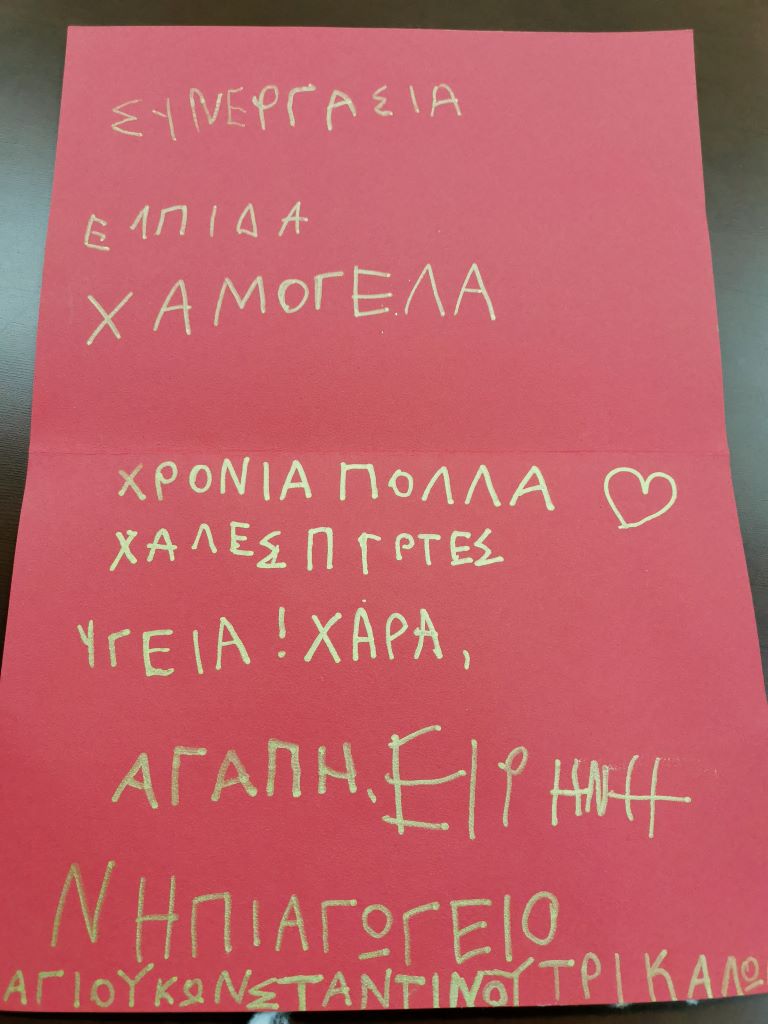 ΣΥΝΕΡΓΑΣΙΑ
ΕΛΠΙΔΑ
ΧΑΜΟΓΕΛΑ
ΧΡΟΝΙΑ ΠΟΛΛΑ
ΧΑΛΕΣ ΓΙΡΤΕΣ
ΥΓΕΙΑ! ΧΑΡΑ,
ΑΓΑΠΗ, ΕΙΡΗΝΗ
ΝΗΠΙΑΓΩΓΕΙΟ
ΑΓΙΟΥ ΚΩΝΣΤΑΝΤΙΝΟΥ ΤΡΙΚΑΛΩ